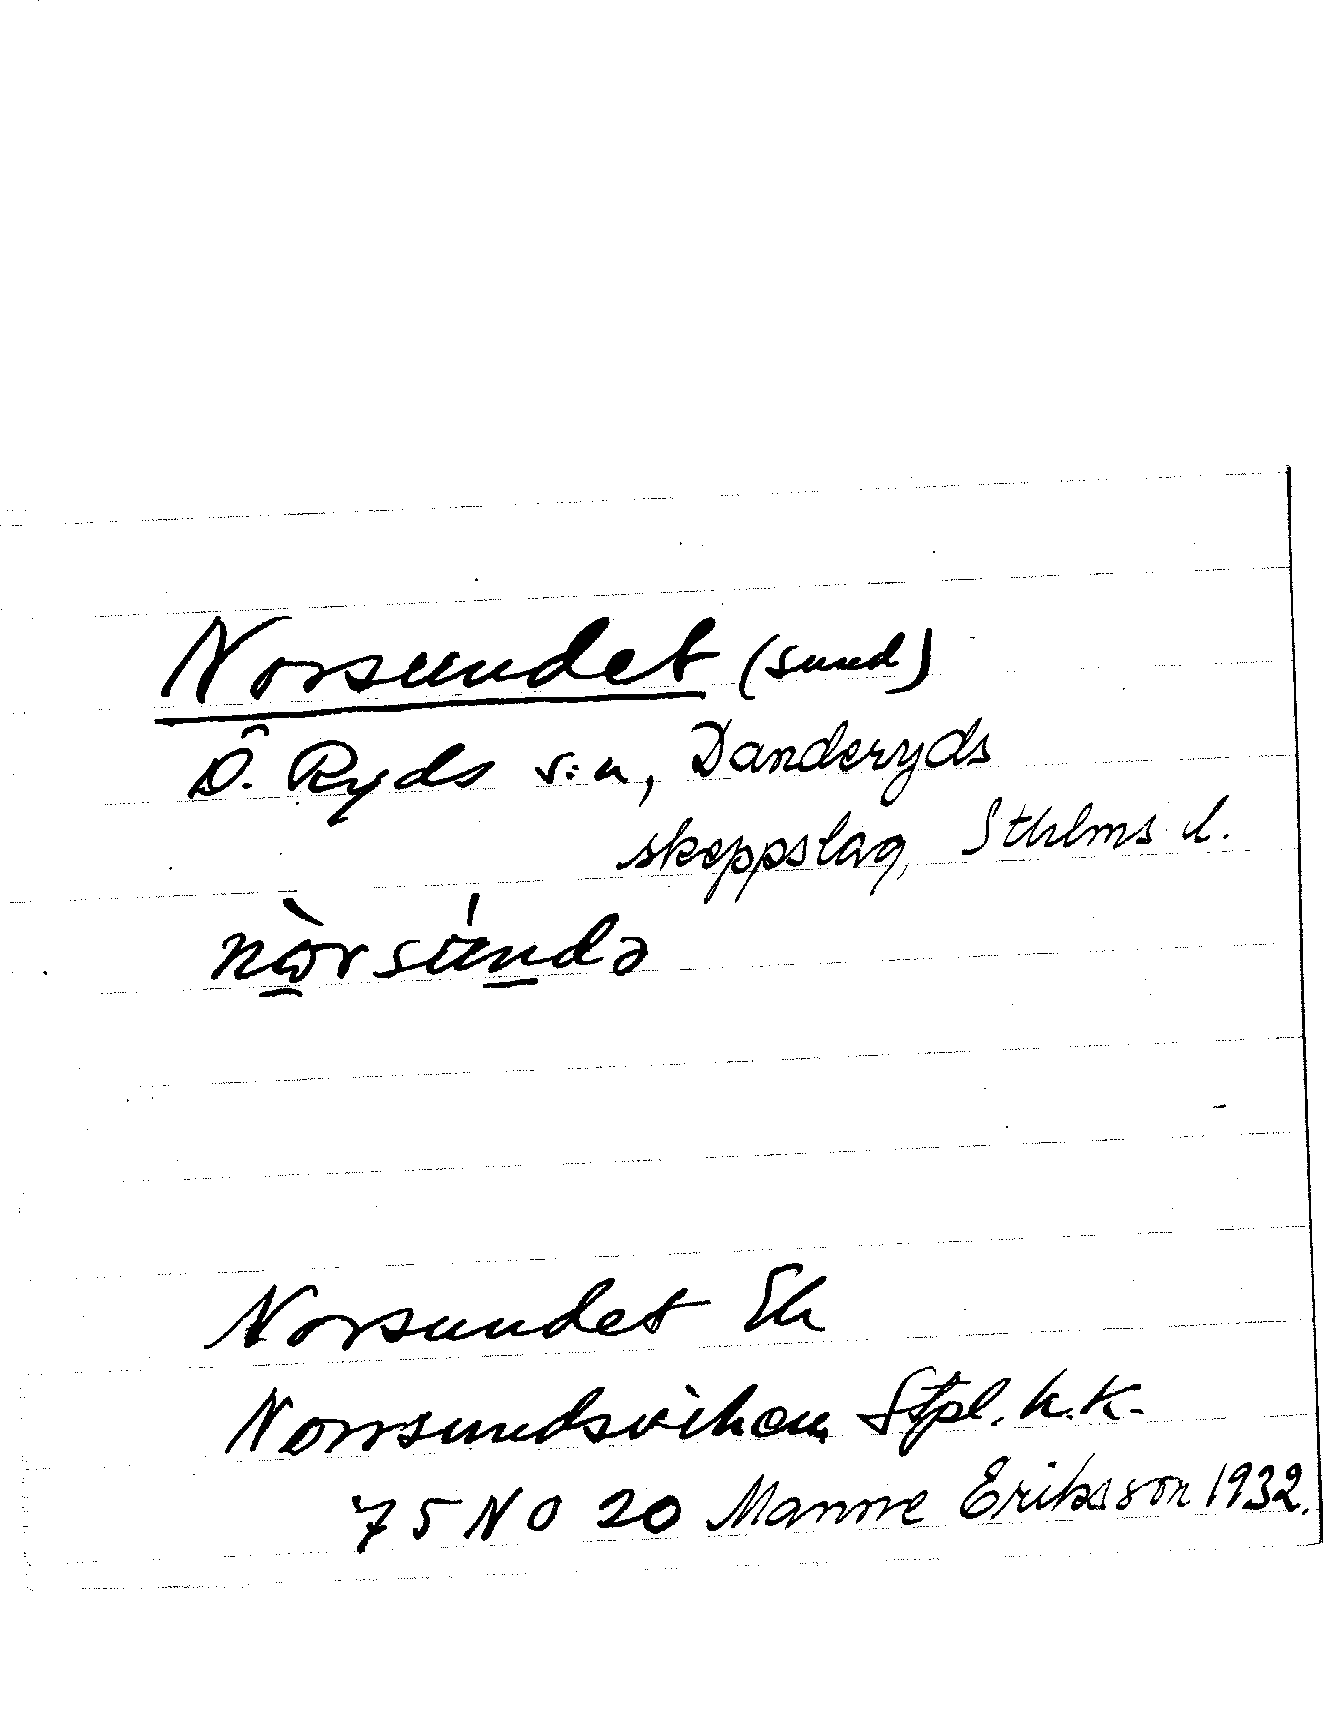 Norsundet (sund)
Ö. Ryds s:n, Danderyds
skeppslag, Sthlms l.
Norsundet Ek
Norrsundsviken Stpl. k.k.
75 NO 20 Manne Eriksson 1932.